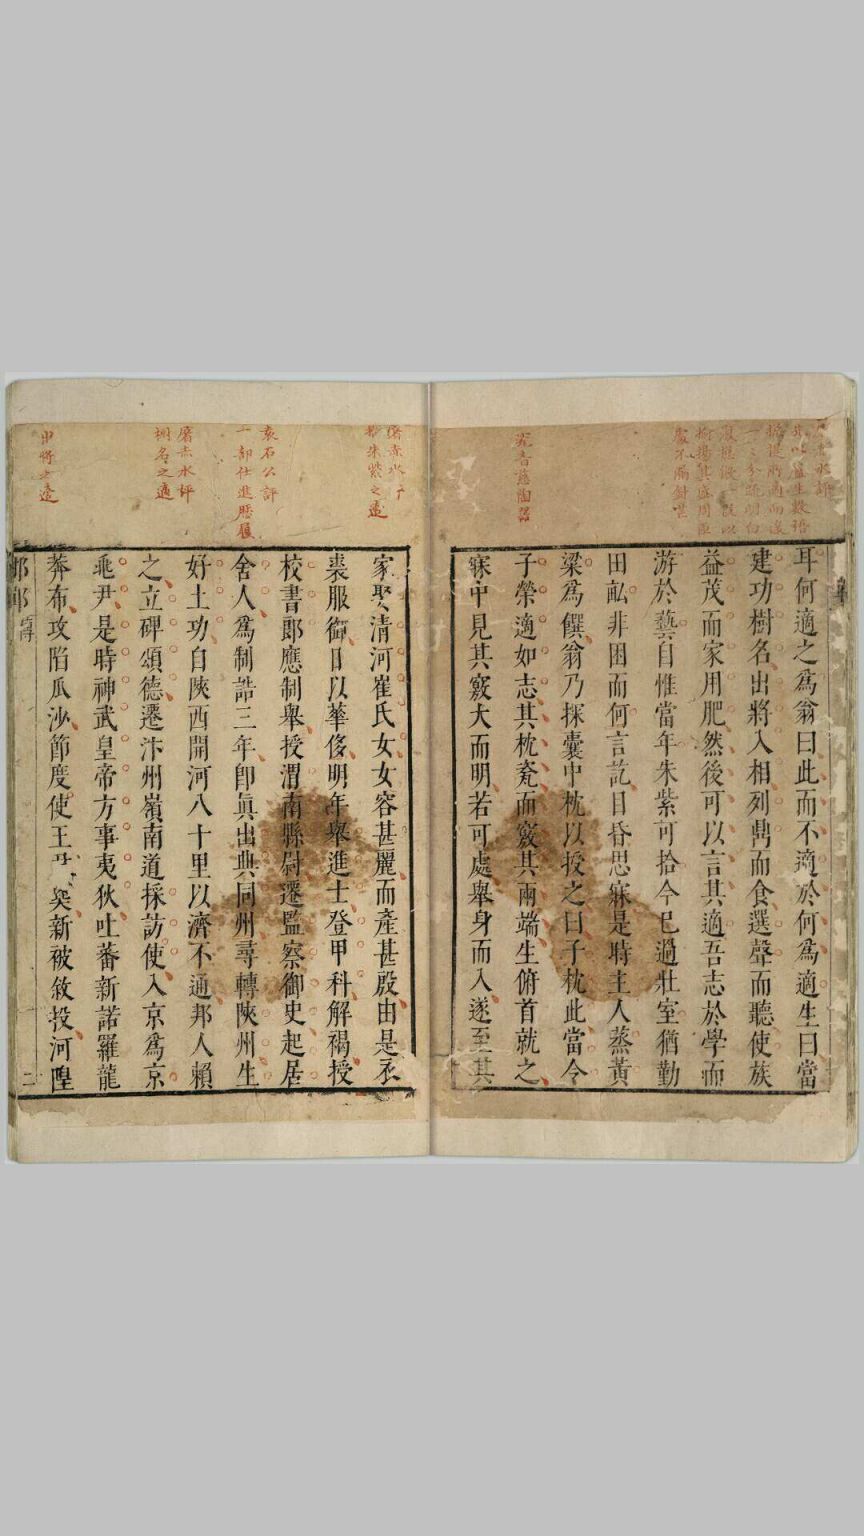 耳何適之爲翁曰此而不適於何爲適生曰當
建功樹名出將入相列鼎而食選聲而聽使族
益茂而家用肥然後可以言其適吾志於學而
游於藝自惟當年朱紫可拾今已過壯室猶勤
田畝非困而何言訖目昏思寐是時主人蒸黃
梁爲饌翁乃探囊中枕以授之曰子枕此當令
子榮適如志其枕瓷而竅其兩端生俯首就之
寐中見其竅大而明若可處舉身而入遂至其
家娶清河崔氏女女容甚麗而產甚殷由是衣
裘服御日以華侈明年舉進士登甲科解褐授
校書郎應制舉授渭南縣尉遷監察御史起居
舍人爲制誥三年卽眞出典同州尋轉陝州生
好土功自陝西開河八十里以濟不通邦人賴
之立碑頌德遷汴州嶺南道採訪使入京爲京
兆尹是時神武皇帝方事夷狄吐蕃新諾羅龍
莽布攻陷瓜沙節度使王㚖新被敘投河隍
袁石公評
一部仕進歷履
屠赤水評
樹名之適
出將之適
二